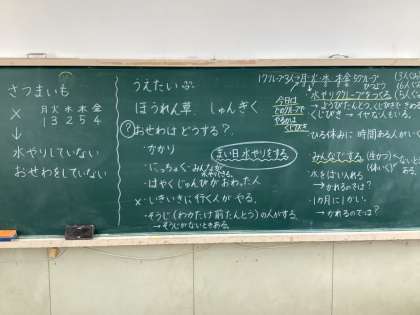 さつまいも
月火水木金
× 1 3 2 5 4
↓
水やりしていない
おせわをしていない
うえたいぶ
ほうれん草. しゅんぎく
?おせわはどうする?.
・かかり
・にっちょく・みんなが
水やりする。
・はやくじゅんびがおわった人
×・いきいきに行く人がやる。
・そうじ(わかたけ前たんとう)の人がする。
→そうじがないときある。
まい日水やりをする
1グループ3人 月火水木金 5グループ
今日は
どのグループで
やるかは
くじびき
・水やりグループをつくる。
→ようびたんとう。くじびきで
くじびき→イヤな人もいる。
・ひる休みに時間ある人が
・みんなでする。
(生かつ)
(体いく)
・水をはい入れる
→かれるのでは?
・1か月に1かい。
→かれるのでは?